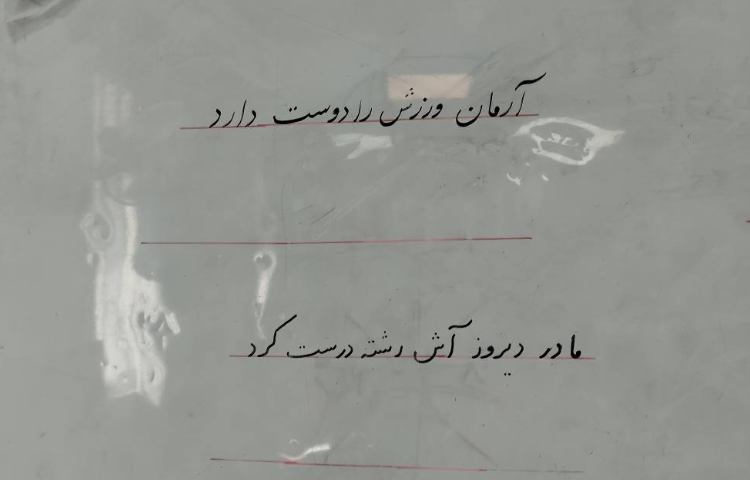 آرمان ورزش را دوست دارد
مادر دیروز آش رشته درست کرد